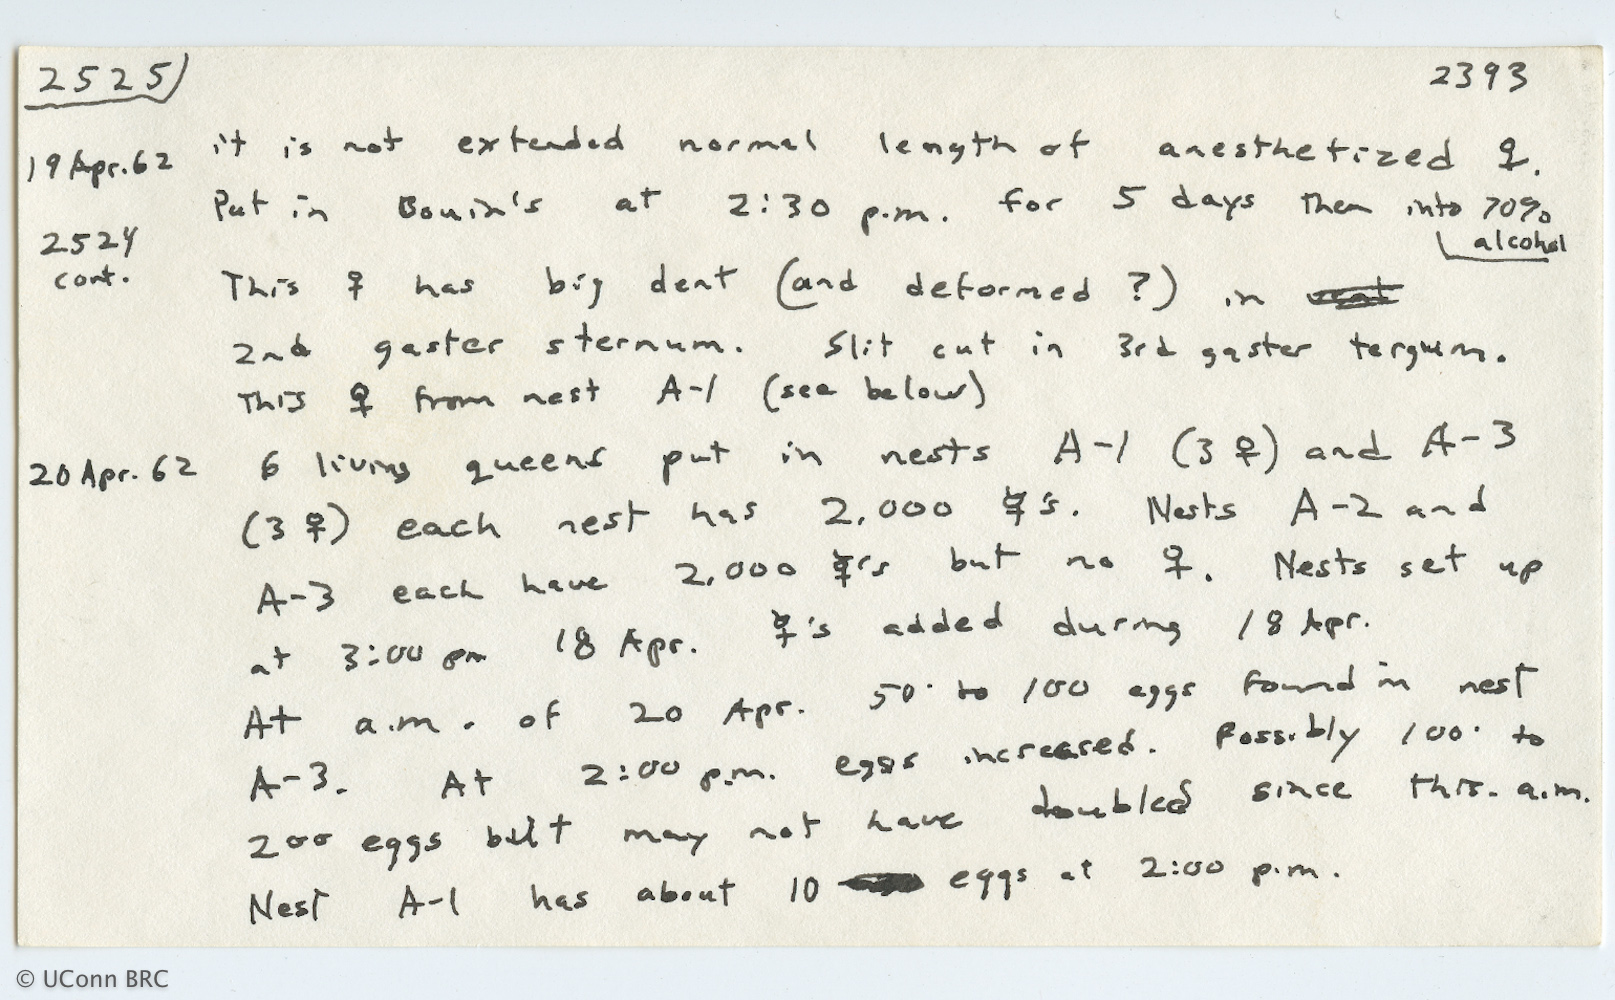 2525) 2393
19 Apr. 62 it is not extended normal length of anesthetized ♀.
Put in Bouin's at 2:30 p.m. for 5 days then into 70%
alcohol
2524
cont. This ♀ has big dent (and deformed ?) in
2nd gaster sternum. Slit cut in 3rd gaster tergum.
This ♀ from nest A-1 (see below)
20 Apr. 62 6 living queens put in nests A-1 (3 ♀) and A-3
(3 ♀) each nest has 2,000 ☿'s. Nests A-2 and
A-3 each have 2,000 ☿'s but no ♀. Nests set up
at 3:00 pm 18 Apr. ☿'s added during 18 Apr.
At a.m. of 20 Apr. 50 to 100 eggs found in nest
A-3. At 2:00 p.m. eggs increased. Possibly 100 to
200 eggs but may not have doubled since this a.m.
Nest A-1 has about 10 eggs at 2:00 p.m.
© UConn BRC